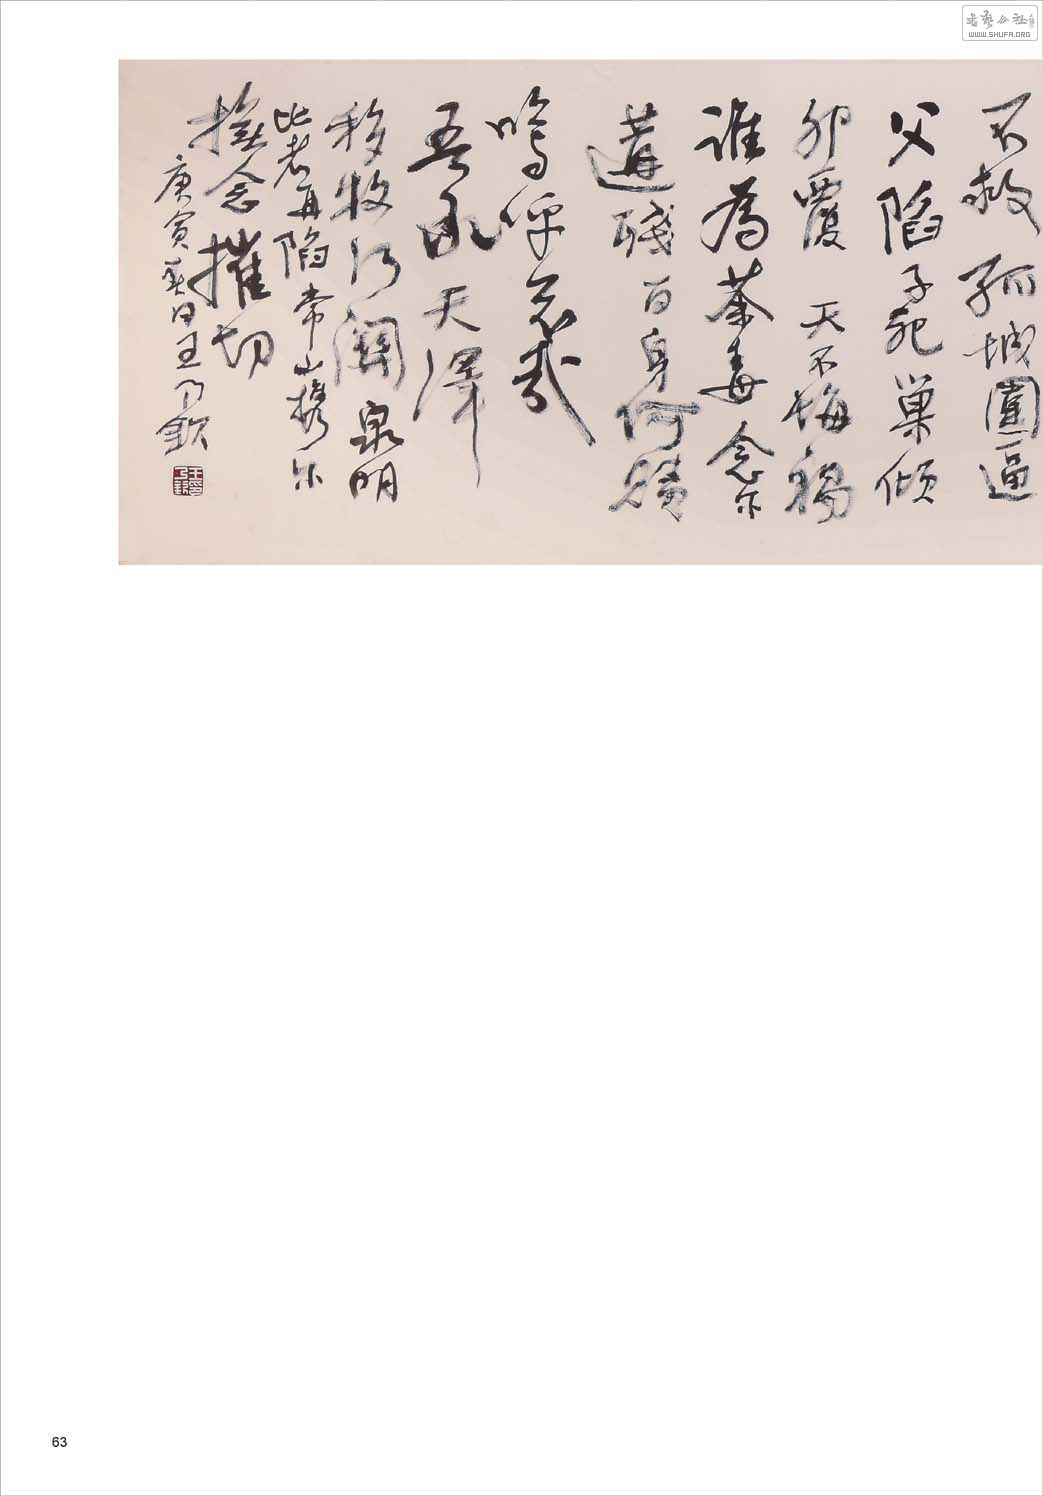 書藝公社
WWW.SHUFA.ORG
不救孤城圍逼
父陷子死巢傾
卵覆天不悔禍
誰為荼毒念尔
遘殘百身何贖
嗚呼哀哉
吾承天澤
移牧河關泉明
比者再陷常山攜尔
撫念摧切
庚寅春日王乃欽
63